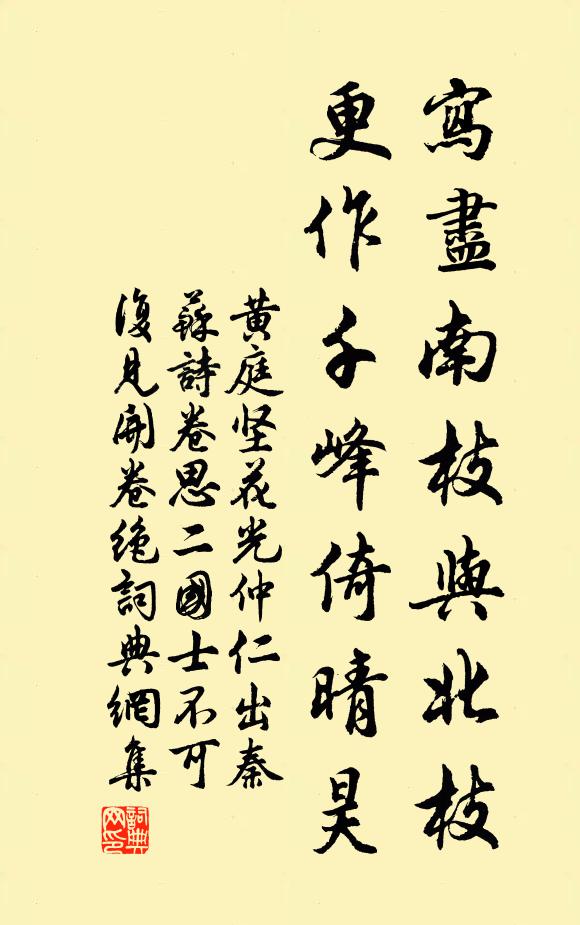 寫盡南枝與北枝
更作千峰倚晴昊
黄庭坚花光仲仁出秦
蘇詩卷思二國士不可
復見開卷绝詞典網集
詞典網印